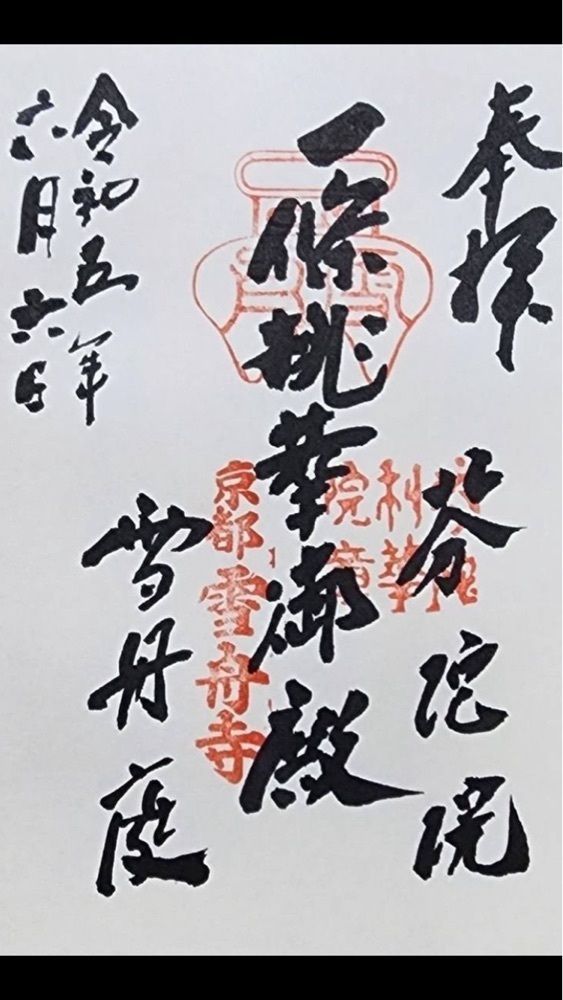 奉拝
芬陀院
一條桃華御殿
京都
雪舟寺
雪舟庭
令和五年
六月六日